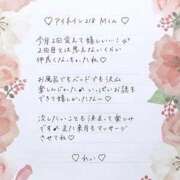 ♡アネキイン218 Mさん♡
今月2回会えて嬉しい…！♡
2回目とは思えないくらい
仲良くなっちゃったね♡
お風呂でもベッドでも沢山
楽しんじゃったね いっぱいお話も
できて嬉しかったなー♡
次したいことも決まって楽しみ
ですね また来月もマッサージ
させてね♡
♡れい♡